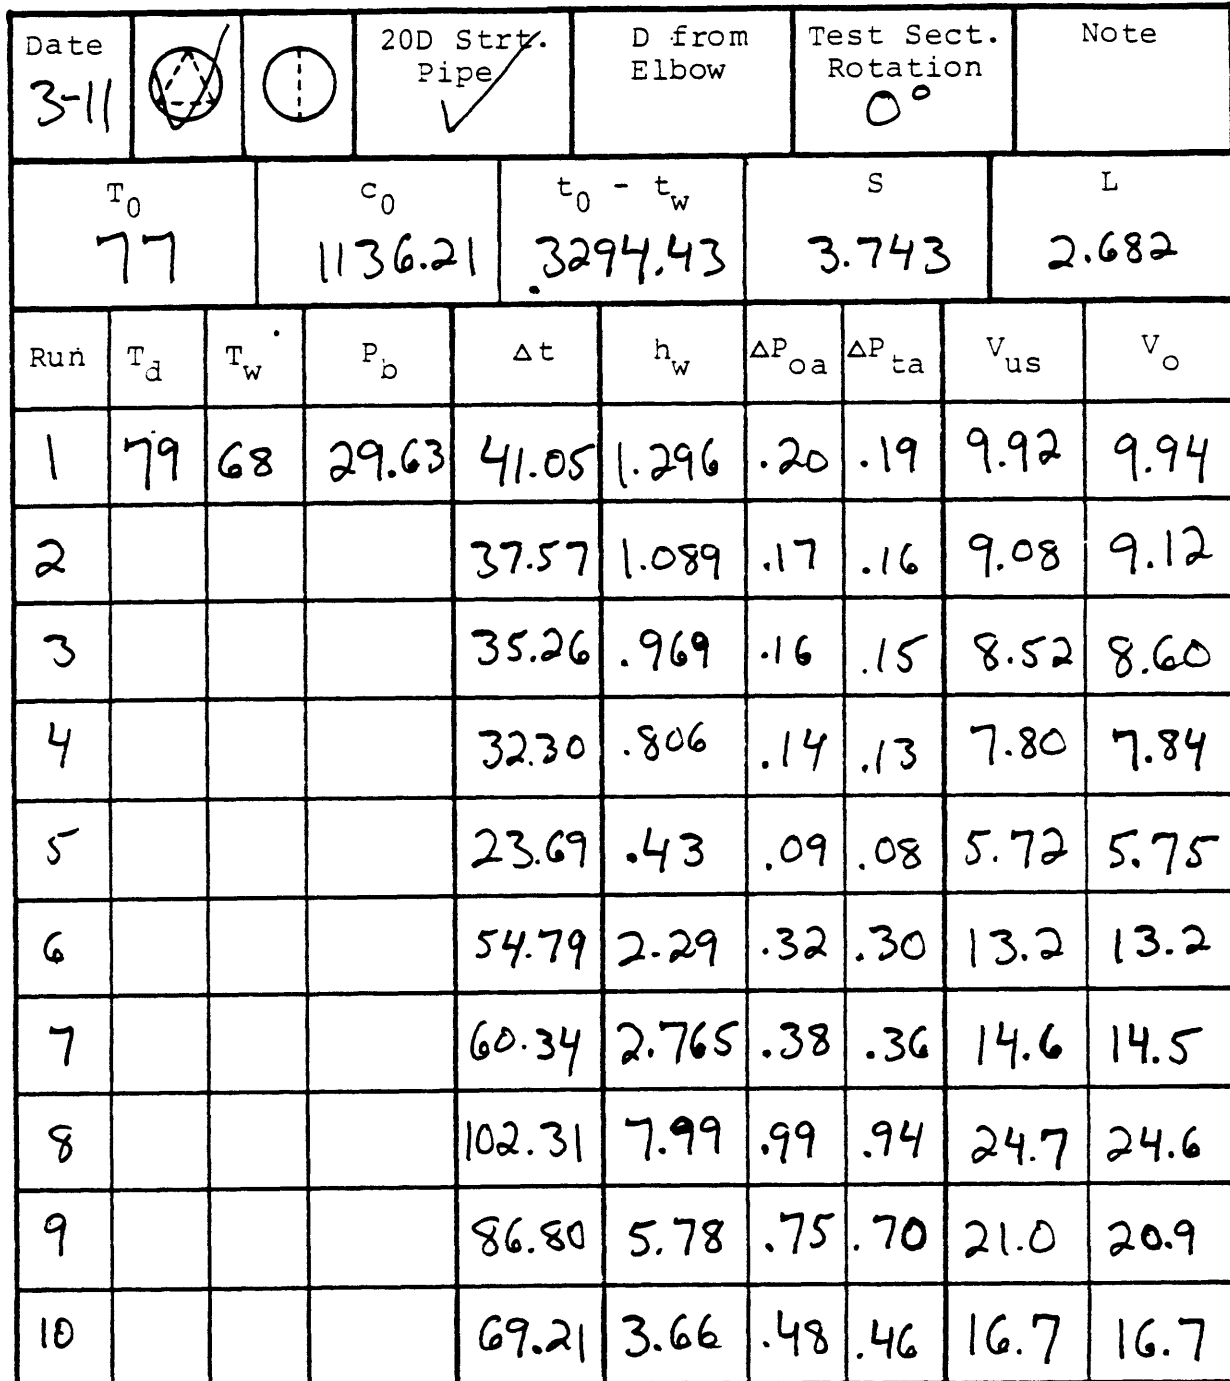 Date 20D Strt. D from Test Sect. Note
3-11 Pipe ✓ Elbow Rotation
0°
T₀ c₀ t₀ - t_w S L
77 1136.21 .3294.43 3.743 2.682
Run T_d T_w P_b Δt h_w ΔP_oa ΔP_ta V_us V_o
1 79 68 29.63 41.05 1.296 .20 .19 9.92 9.94
2 37.57 1.089 .17 .16 9.08 9.12
3 35.26 .969 .16 .15 8.52 8.60
4 32.30 .806 .14 .13 7.80 7.84
5 23.69 .43 .09 .08 5.72 5.75
6 54.79 2.29 .32 .30 13.2 13.2
7 60.34 2.765 .38 .36 14.6 14.5
8 102.31 7.99 .99 .94 24.7 24.6
9 86.80 5.78 .75 .70 21.0 20.9
10 69.21 3.66 .48 .46 16.7 16.7